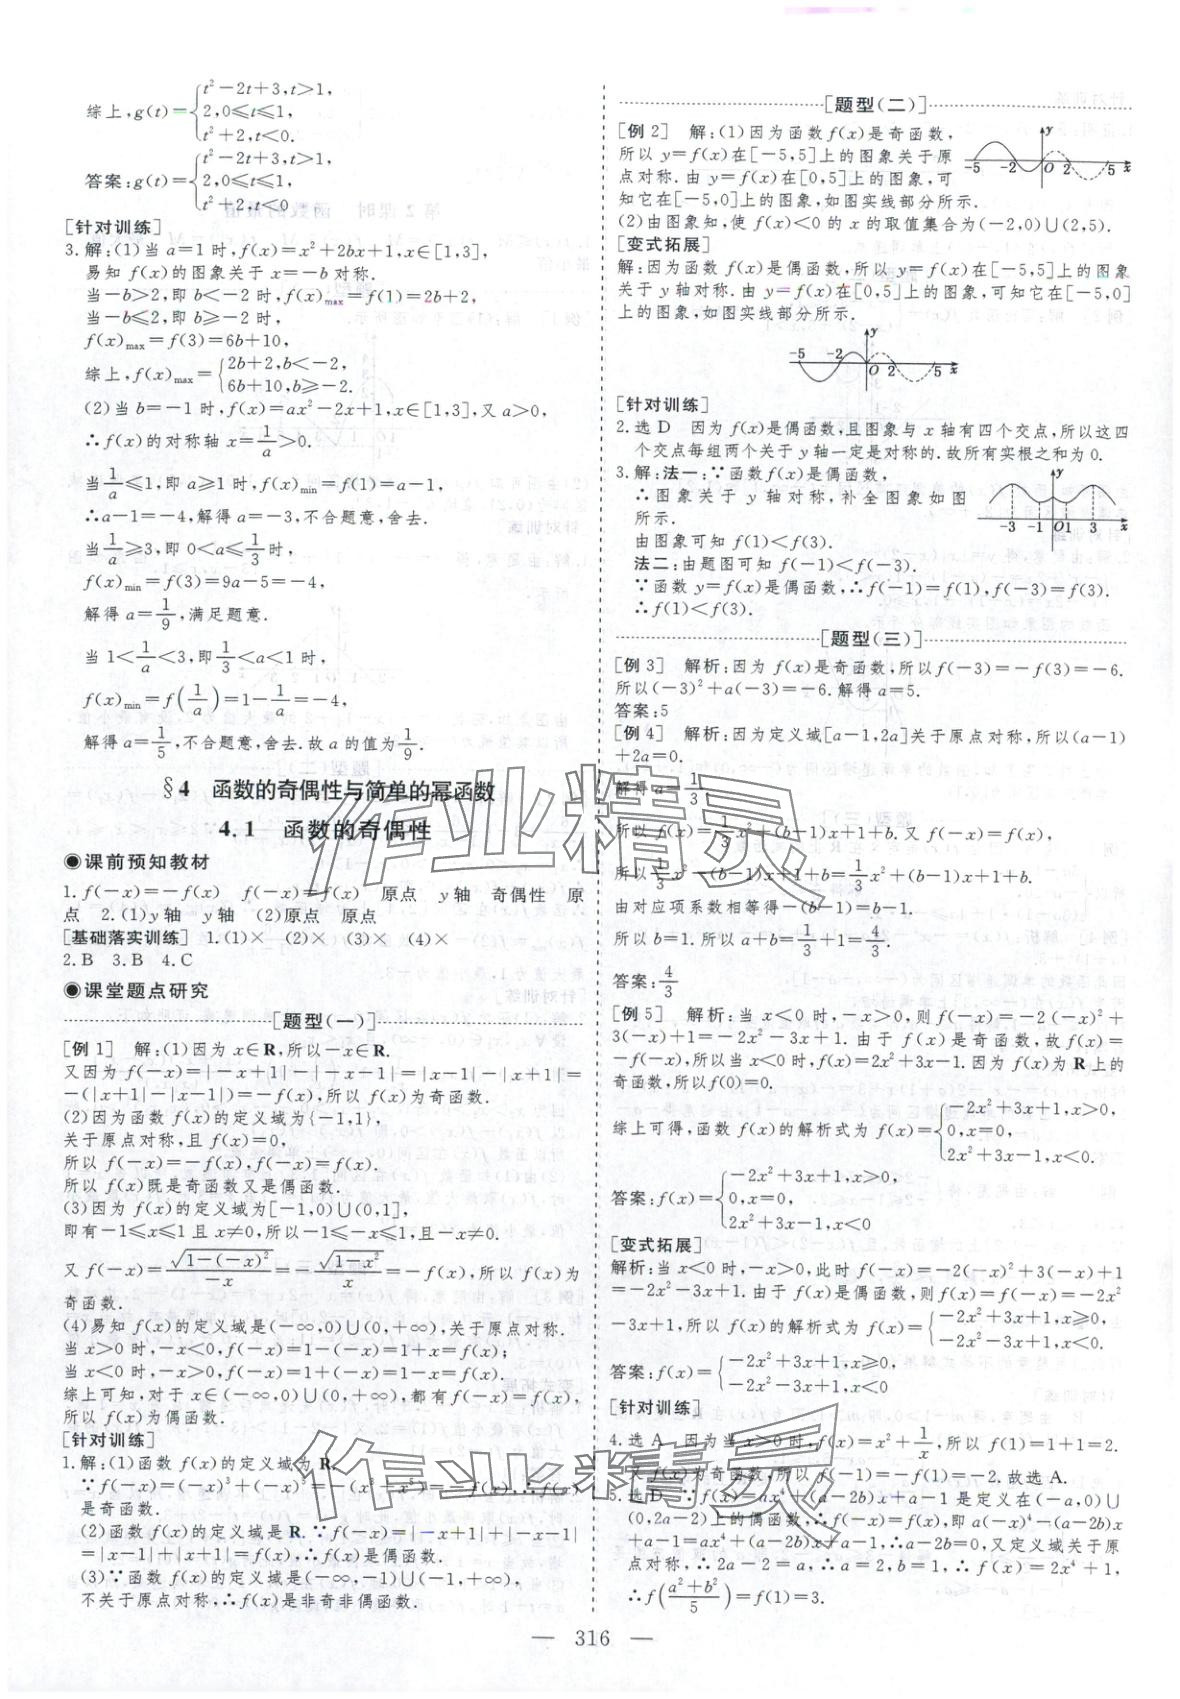 综上,g(t)={t²-2t+3,t>1,
2,0≤t≤1,
t²+2,t<0.
答案:g(t)={t²-2t+3,t>1,
2,0≤t≤1,
t²+2,t<0
[针对训练]
3.解:(1)当 a=1时,f(x)=x²+2bx+1,x∈[1,3],
易知 f(x)的图象关于 x=-b 对称.
当-b>2,即 b<-2 时,f(x)max=f(1)=2b+2,
当-b≤2,即 b≥-2 时,
f(x)max=f(3)=6b+10,
综上,f(x)max={2b+2,b<-2,
6b+10,b≥-2.
(2)当 b=-1 时,f(x)=ax²-2x+1,x∈[1,3],又 a>0,
∴f(x)的对称轴 x=1/a>0.
当1/a≤1,即 a≥1时,f(x)min=f(1)=a-1,
∴a-1=-4,解得 a=-3,不合题意,舍去.
当1/a≥3,即 0<a≤1/3时,
f(x)min=f(3)=9a-5=-4,
解得 a=1/9,满足题意.
当 1<1/a<3,即1/3<a<1时,
f(x)min=f(1/a)=1-1/a=-4,
解得 a=1/5,不合题意,舍去.故 a 的值为1/9.
§4 函数的奇偶性与简单的幂函数
4.1 函数的奇偶性
◉课前预知教材
1.f(-x)=-f(x) f(-x)=f(x) 原点 y轴 奇偶性 原
点 2.(1)y轴 y轴 (2)原点 原点
[基础落实训练] 1.(1)× (2)× (3)× (4)×
2.B 3.B 4.C
◉课堂题点研究
[题型(一)]
[例1] 解:(1)因为 x∈R,所以-x∈R.
又因为 f(-x)=|-x+1|-|-x-1|=|x-1|-|x+1|=
-(|x+1|-|x-1|)=-f(x),所以 f(x)为奇函数.
(2)因为函数 f(x)的定义域为{-1,1},
关于原点对称,且 f(x)=0,
所以 f(-x)=-f(x),f(-x)=f(x).
所以 f(x)既是奇函数又是偶函数.
(3)因为 f(x)的定义域为[-1,0)∪(0,1],
即有-1≤x≤1 且 x≠0,所以-1≤-x≤1,且-x≠0.
又 f(-x)=√(1-(-x)²)/(-x)=-√(1-x²)/x=-f(x),所以 f(x)为
奇函数.
(4)易知 f(x)的定义域是(-∞,0)∪(0,+∞),关于原点对称.
当 x>0 时,-x<0,f(-x)=1-(-x)=1+x=f(x);
当 x<0 时,-x>0,f(-x)=1+(-x)=1-x=f(x).
综上可知,对于 x∈(-∞,0)∪(0,+∞),都有 f(-x)=f(x),
所以 f(x)为偶函数.
[针对训练]
1.解:(1)函数 f(x)的定义域为 R.
∵f(-x)=(-x)³+(-x)⁵=-(x³+x⁵)=-f(x),∴f(x)
是奇函数.
(2)函数 f(x)的定义域是 R.∵f(-x)=|-x+1|+|-x-1|
=|x-1|+|x+1|=f(x),∴f(x)是偶函数.
(3)∵函数 f(x)的定义域是(-∞,-1)∪(-1,+∞),
不关于原点对称,∴f(x)是非奇非偶函数.
[题型(二)]
[例2] 解:(1)因为函数 f(x)是奇函数,
所以 y=f(x)在[-5,5]上的图象关于原
点对称.由 y=f(x)在[0,5]上的图象,可
知它在[-5,0]上的图象,如图实线部分所示.
-5 -2 O 2 5 x y
(2)由图象知,使 f(x)<0 的 x 的取值集合为(-2,0)∪(2,5).
[变式拓展]
解:因为函数 f(x)是偶函数,所以 y=f(x)在[-5,5]上的图象
关于 y 轴对称.由 y=f(x)在[0,5]上的图象,可知它在[-5,0]
上的图象,如图实线部分所示.
-5 -2 O 2 5 x y
[针对训练]
2.选 D 因为 f(x)是偶函数,且图象与 x 轴有四个交点,所以这四
个交点每组两个关于 y 轴一定是对称的.故所有实根之和为 0.
3.解:法一:∵函数 f(x)是偶函数,
∴图象关于 y 轴对称,补全图象如图
所示.
-3 -1 O 1 3 x y
由图象可知 f(1)<f(3).
法二:由题图可知 f(-1)<f(-3).
∵函数 y=f(x)是偶函数,∴f(-1)=f(1),f(-3)=f(3).
∴f(1)<f(3).
[题型(三)]
[例3] 解析:因为 f(x)是奇函数,所以 f(-3)=-f(3)=-6.
所以(-3)²+a(-3)=-6.解得 a=5.
答案:5
[例4] 解析:因为定义域[a-1,2a]关于原点对称,所以(a-1)
+2a=0.
解得 a=1/3.
所以 f(x)=1/3x²+(b-1)x+1+b.又 f(-x)=f(x),
所以1/3x²-(b-1)x+1+b=1/3x²+(b-1)x+1+b.
由对应项系数相等得-(b-1)=b-1.
所以 b=1.所以 a+b=1/3+1=4/3.
答案:4/3
[例5] 解析:当 x<0 时,-x>0,则 f(-x)=-2(-x)²+
3(-x)+1=-2x²-3x+1.由于 f(x)是奇函数,故 f(x)=
-f(-x),所以当 x<0 时,f(x)=2x²+3x-1.因为 f(x)为 R 上的
奇函数,所以 f(0)=0.
综上可得,函数 f(x)的解析式为 f(x)={-2x²+3x+1,x>0,
0,x=0,
2x²+3x-1,x<0.
答案:f(x)={-2x²+3x+1,x>0,
0,x=0,
2x²+3x-1,x<0
[变式拓展]
解析:当 x<0 时,-x>0,此时 f(-x)=-2(-x)²+3(-x)+1
=-2x²-3x+1.由于 f(x)是偶函数,则 f(x)=f(-x)=-2x²
-3x+1,所以 f(x)的解析式为 f(x)={-2x²+3x+1,x≥0,
-2x²-3x+1,x<0.
答案:f(x)={-2x²+3x+1,x≥0,
-2x²-3x+1,x<0
[针对训练]
4.选 A 因为当 x>0 时,f(x)=x²+1/x,所以 f(1)=1+1=2.
又 f(x)为奇函数,所以 f(-1)=-f(1)=-2.故选 A.
5.选 D ∵f(x)=ax⁴+(a-2b)x+a-1 是定义在(-a,0)∪
(0,2a-2)上的偶函数,∴f(-x)=f(x),即 a(-x)⁴-(a-2b)x
+a-1=ax⁴+(a-2b)x+a-1,∴a-2b=0,又定义域关于原
点对称,∴2a-2=a,∴a=2,b=1,∴f(x)=2x⁴+1,
∴f((a²+b²)/5)=f(1)=3.
— 316 —
作业精灵
作业精灵